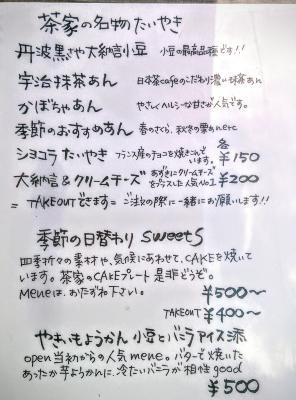 茶家の名物たいやき
丹波黒さや大納言小豆 小豆の最高品種です!!
宇治抹茶あん 日本茶cafeのこだわり濃い抹茶あん
かぼちゃあん やさしくヘルシーな甘さが人気です。
季節のおすすめあん 春のさくら、秋冬の栗あんetc
ショコラたいやき フランス産のチョコを焼きこんでいます。 各¥150
大納言&クリームチーズ あずきにクリームチーズをプラスした人気No.1 ¥200
=TAKEOUTできます= ご注文の際に一緒にお願いします!!
季節の日替わり sweets
四季折々の素材や、気候にあわせて、CAKEを焼いて
います。茶家のCAKEプレート是非どうぞ。
meneは、おたずね下さい。
¥500〜
TAKEOUT ¥400〜
やきいもようかん 小豆とバニラアイス添
open当初からの人気mene。バターで焼いた
あったか芋ようかんに、冷たいバニラが相性good
¥500